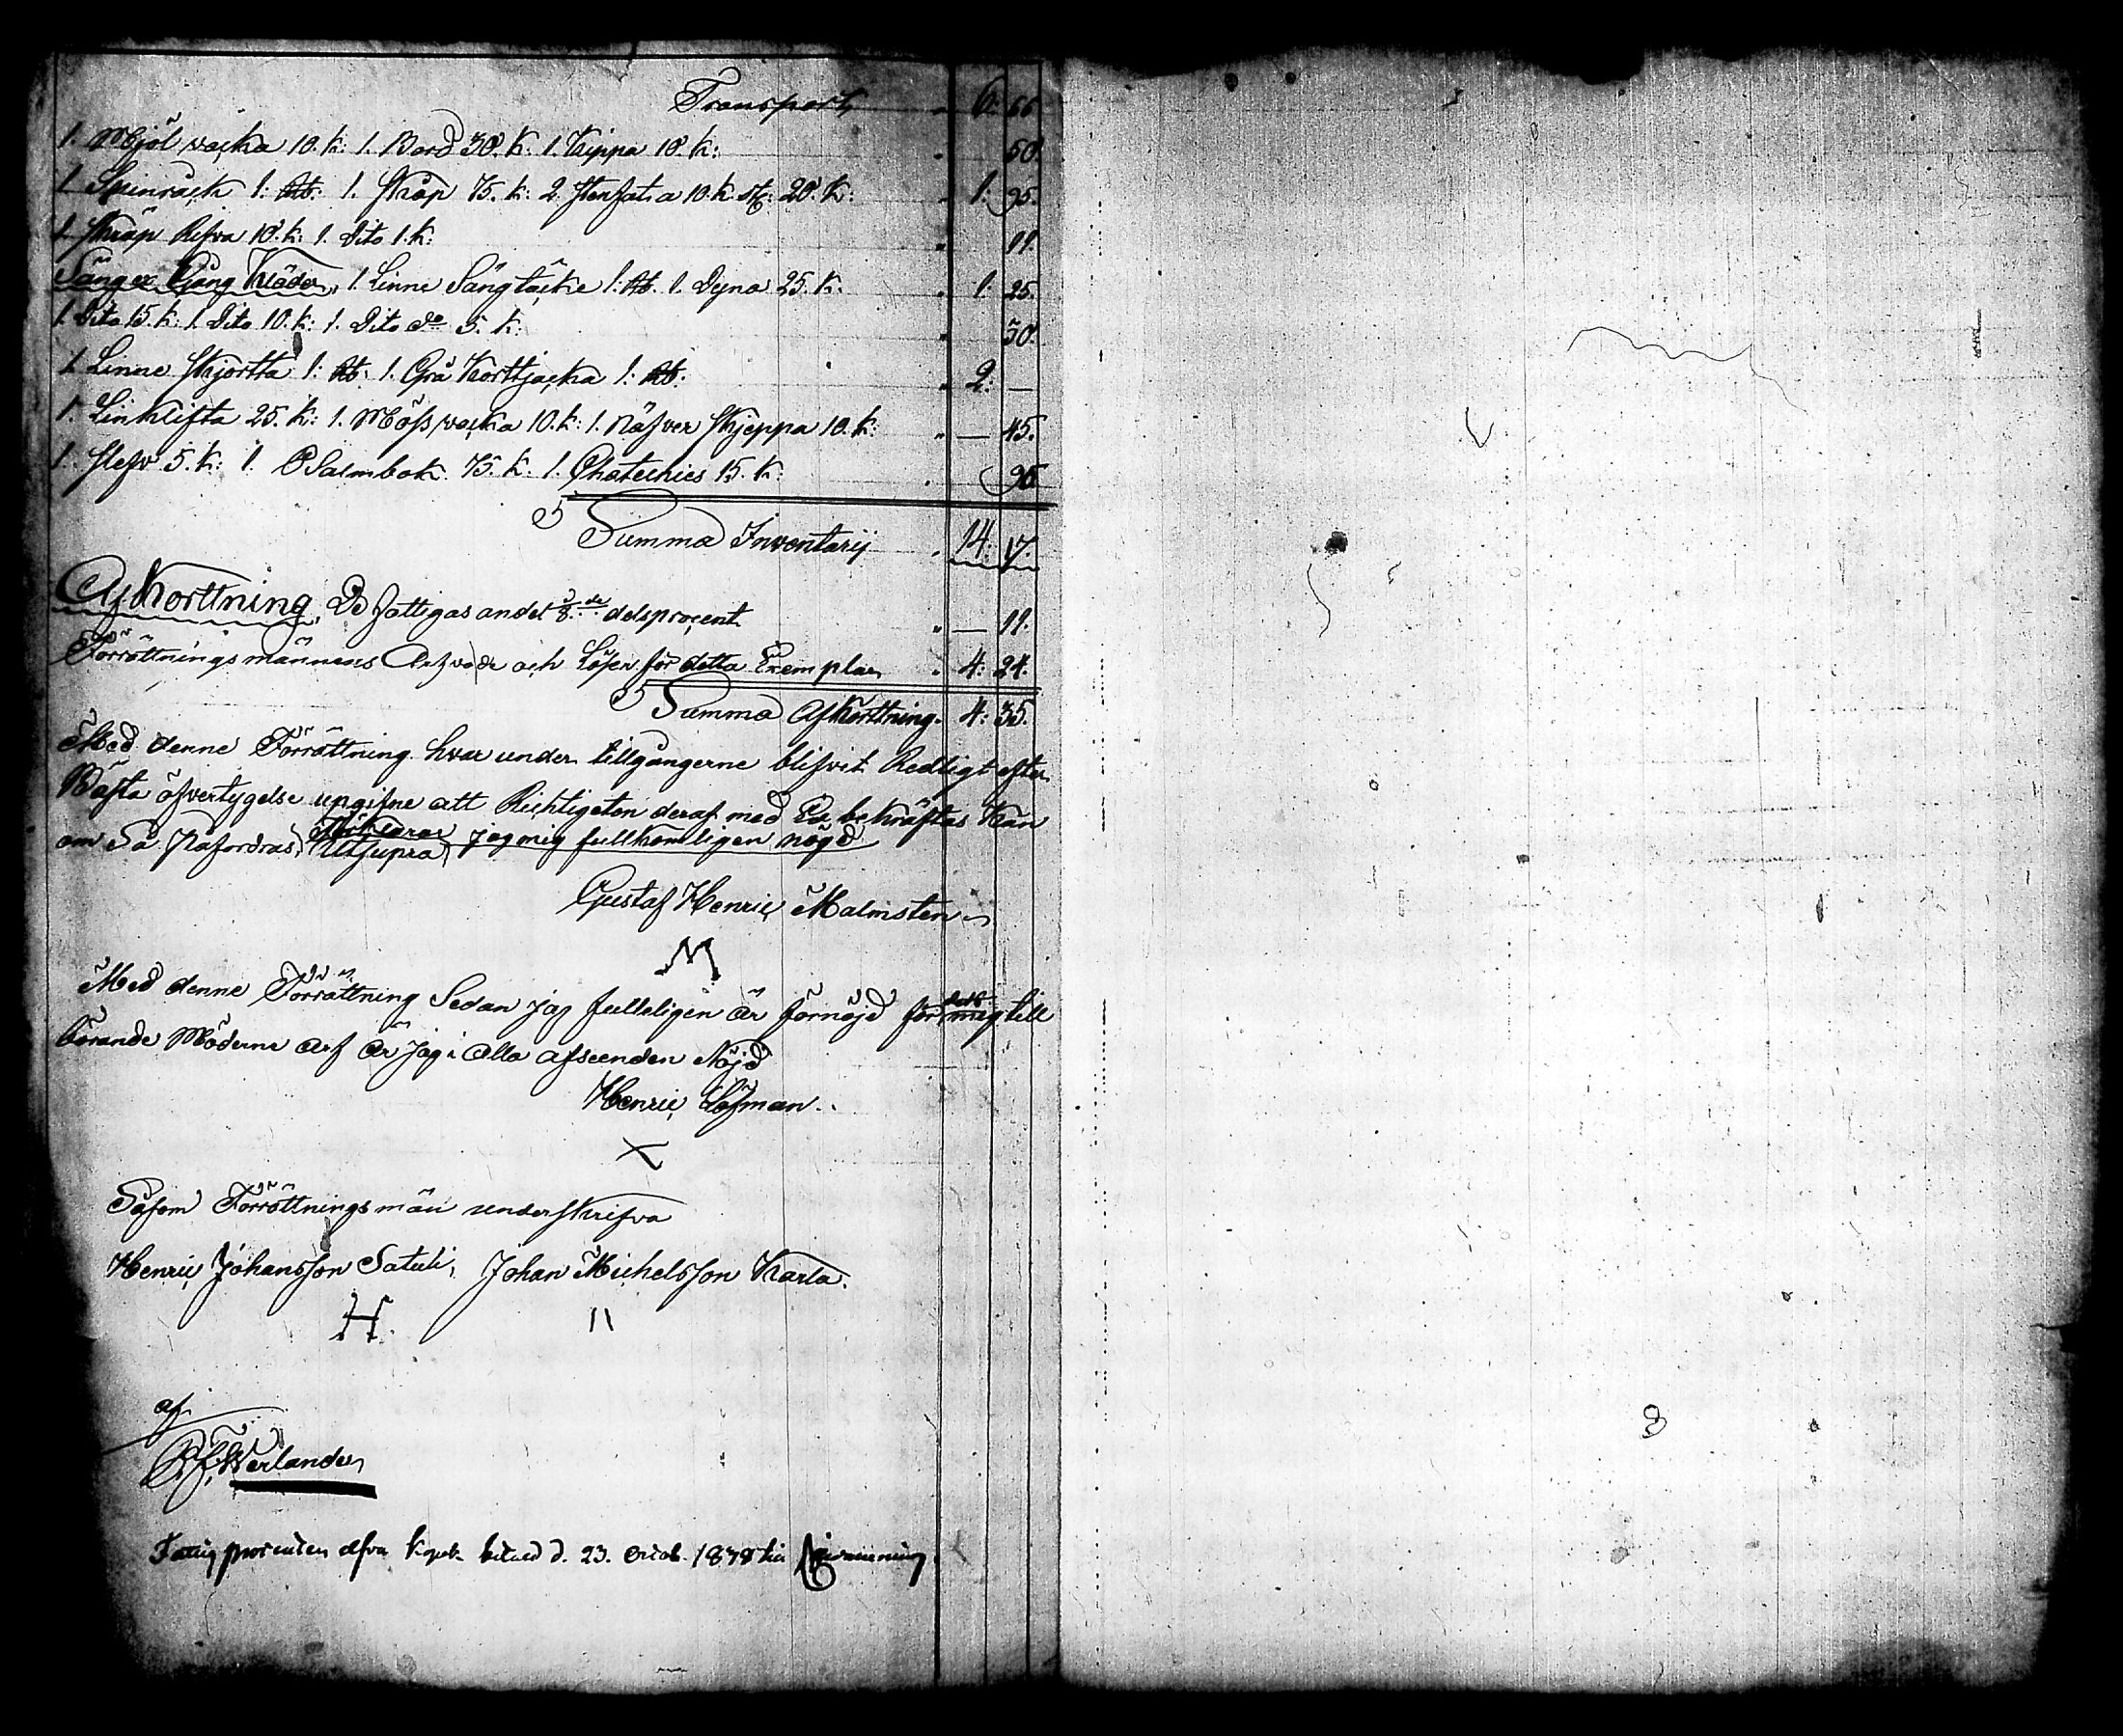 Transport " 6: 66
1. Mjöl vacka 10. k: 1. Bord 30. k: 1. Kippa 10. k: " 50.
1 Spinråck 1: Rb: 1. Skåp 75. k: 2 Stenfat a 10. k st: 20. k: " 1: 95.
1. Skräp Refva 10. k: 1. Dito 1. k: " 11.
Sänger Gång Kläder, 1 Linne Sängtäcke 1: Rb. 1. Dyna 25. k. " 1: 25.
1 Dito 15. k: 1. Dito 10. k: 1. Dito do 5. k: " 30.
1 Linne Skjortta 1: Rb: 1. Grå Korttjacka 1: Rb: " 2: —
1. Linklifta 25. k: 1. Möss vacka 10. k: 1. Näfver Skjeppa 10. k: " — 45.
1. Slef 5. k: 1. PSalmbok 75. k: 1. Chatechies 15. k: " 95
Summa Inventarij " 14: 17.
Afkorttning, De fattigas andel 8.de delsprocent " — 11.
Förrättningsmännens Arfvode och Lösen för detta Exemplar " 4: 24.
Summa Afkorttning. 4: 35.
Med denne Förrättning hvar under tillgångerne blifvit Redligt efter
Bästa öfvertygelse upgifne att Richtigeten deraf med Ed bekräftas Kan
om Så Påfordras, förklarar
Utsupra, jag mig fullkomligen nögd
Gustaf Henric Malmsten
M
Med denne Förrättning Sedan jag fulleligen är förnöjd för mig till
börande Möderne Arf är Jag i Alla afseenden Nöjd
Henric Löfman.
X
Såsom Förrättningsmän underskrifva
Henric Johansson Satuli, Johan Michelsson Karla.
H. II
af
Werlander
Fattig procenten Kopek d. 23. Octob. 1838